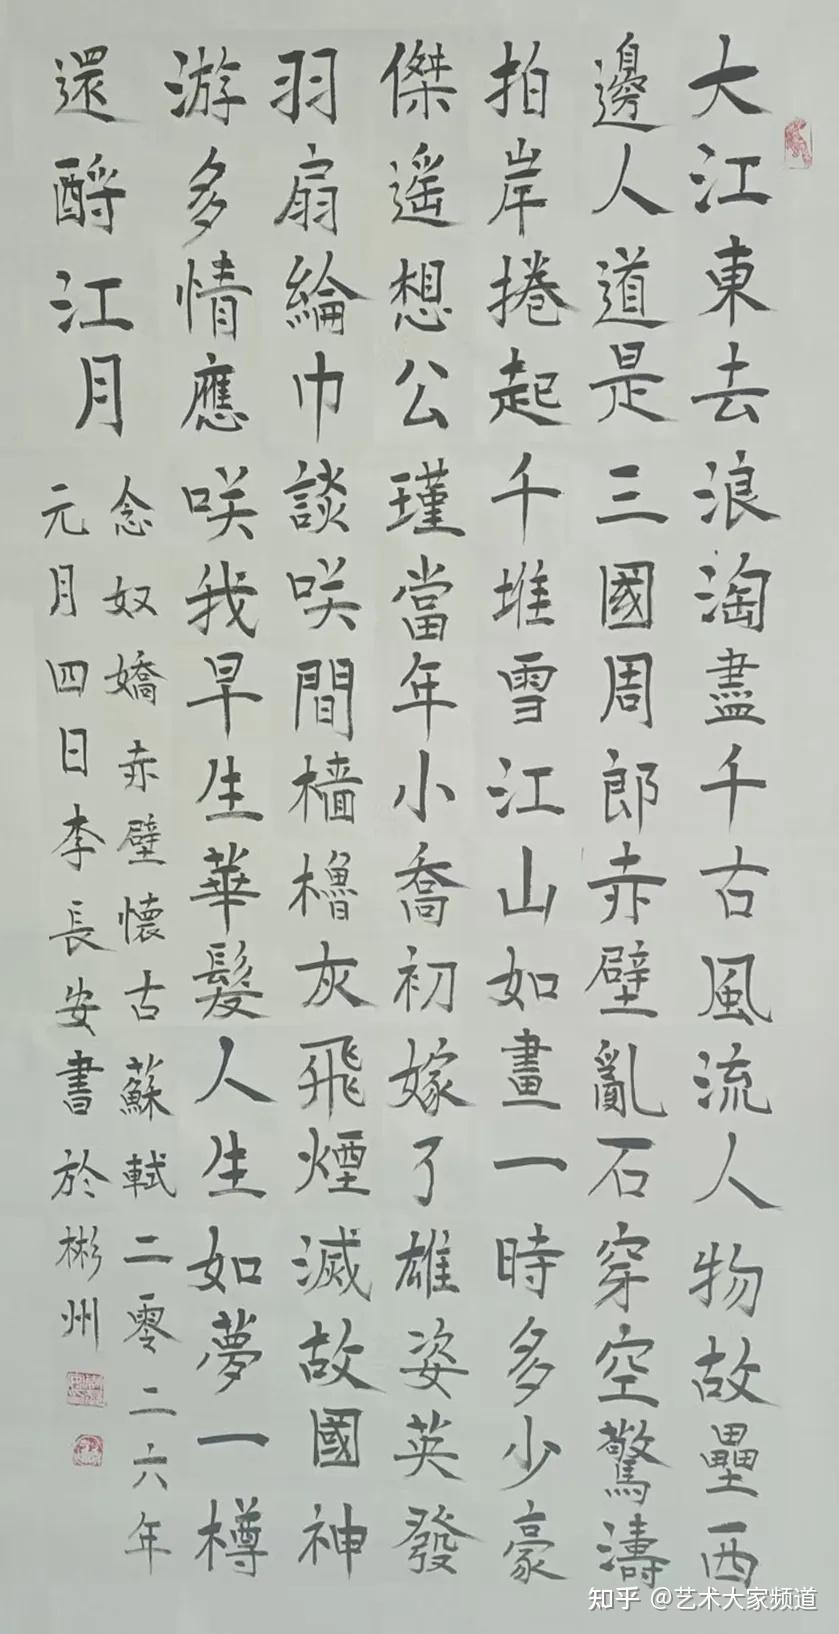 大江東去浪淘盡千古風流人物故壘西
邊人道是三國周郎赤壁亂石穿空驚濤
拍岸捲起千堆雪江山如畫一時多少豪
傑遥想公瑾當年小喬初嫁了雄姿英發
羽扇綸巾談咲間檣櫓灰飛煙滅故國神
游多情應咲我早生華髮人生如夢一樽
還酹江月
念奴嬌赤壁懷古蘇軾二零二六年
元月四日李長安書於彬州
知乎 @艺术大家频道